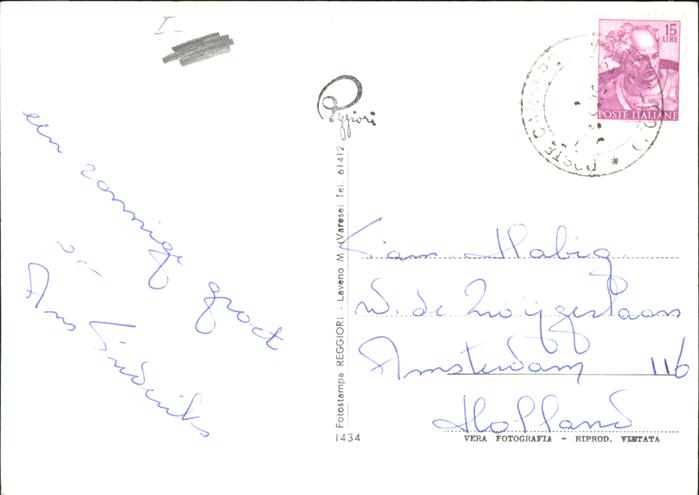 I-
15
LIRE
POSTE ITALIANE
Reggiori
een zonnige groet
Ans
Fam. Habig
W. de Zwijgerlaan
Amsterdam 116
Holland
Fotostampa REGGIORI - Laveno M. (Varese) Tel. 61412
1434
VERA FOTOGRAFIA - RIPROD. VIETATA